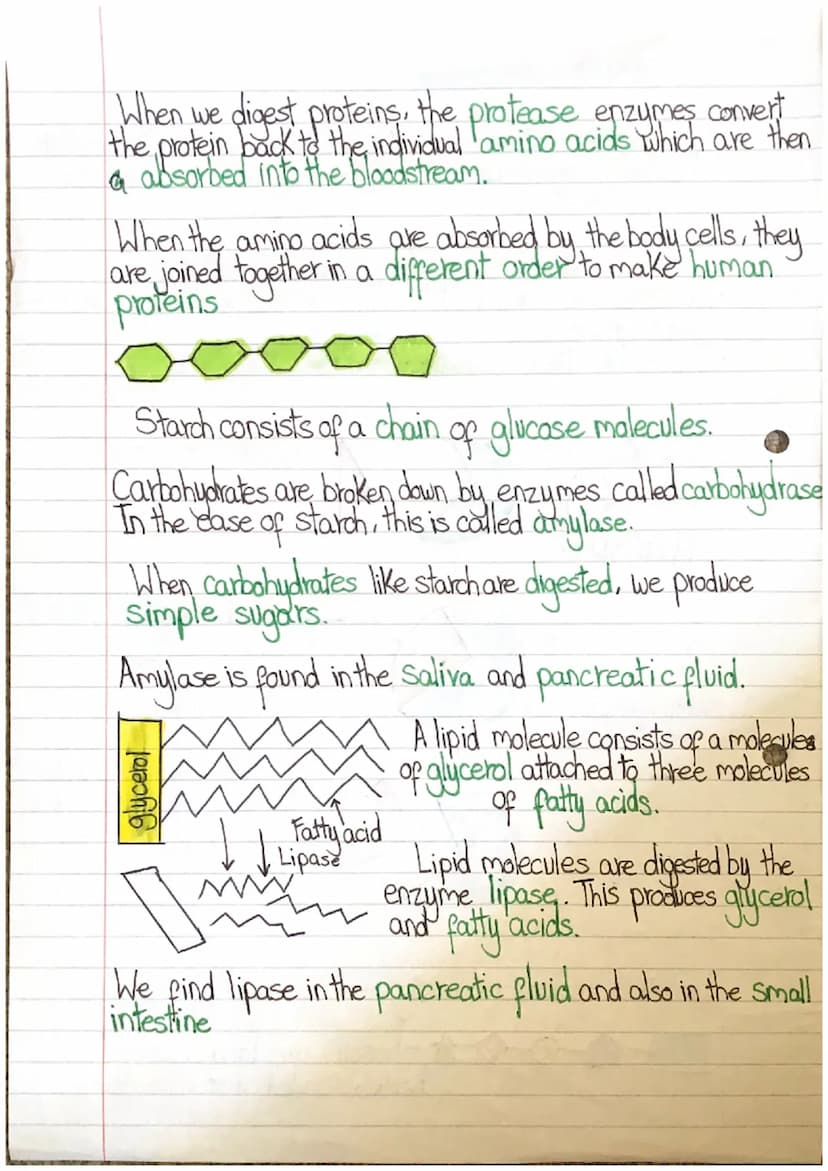 When we digest proteins, the protease enzymes convert
the protein back to the individual amino acids which are then
a absorbed into the bloodstream.
When the amino acids are absorbed by the body cells, they
are joined together in a different order to make human
proteins
Starch consists of a chain of glucose molecules.
Carbohydrates are broken down by enzymes called carbohydrase
In the case of starch, this is called amylase.
When carbohydrates like starch are digested, we produce
simple sugars.
Amylase is found in the saliva and pancreatic fluid.
glycerol
A lipid molecule consists of a molecules
of glycerol attached to three molecules
of fatty acids.
Fatty acid
Lipase
Lipid molecules are digested by the
enzyme lipase. This produces glycerol
and fatty acids.
We find lipase in the pancreatic fluid and also in the small
intestine